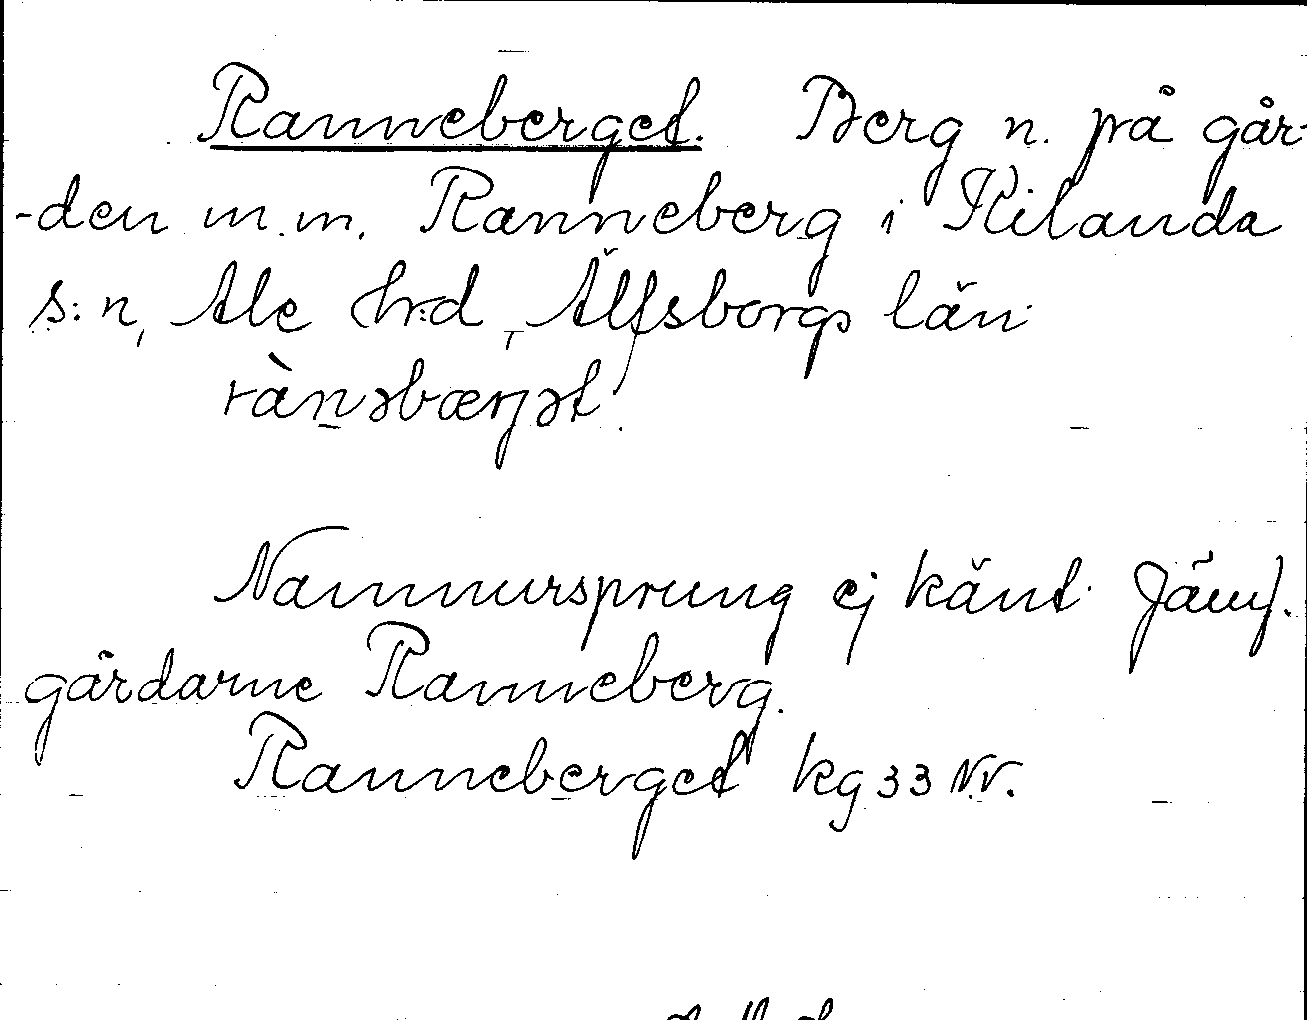 Ranneberget. Berg n. på går-
-den m.m. Ranneberg i Kilanda
s:n, Ale hrd, Älfsborgs län
rànəbærjət.
Namnursprung ej känt. Jämf.
gårdarne Ranneberg.
Ranneberget kg 33 NV.